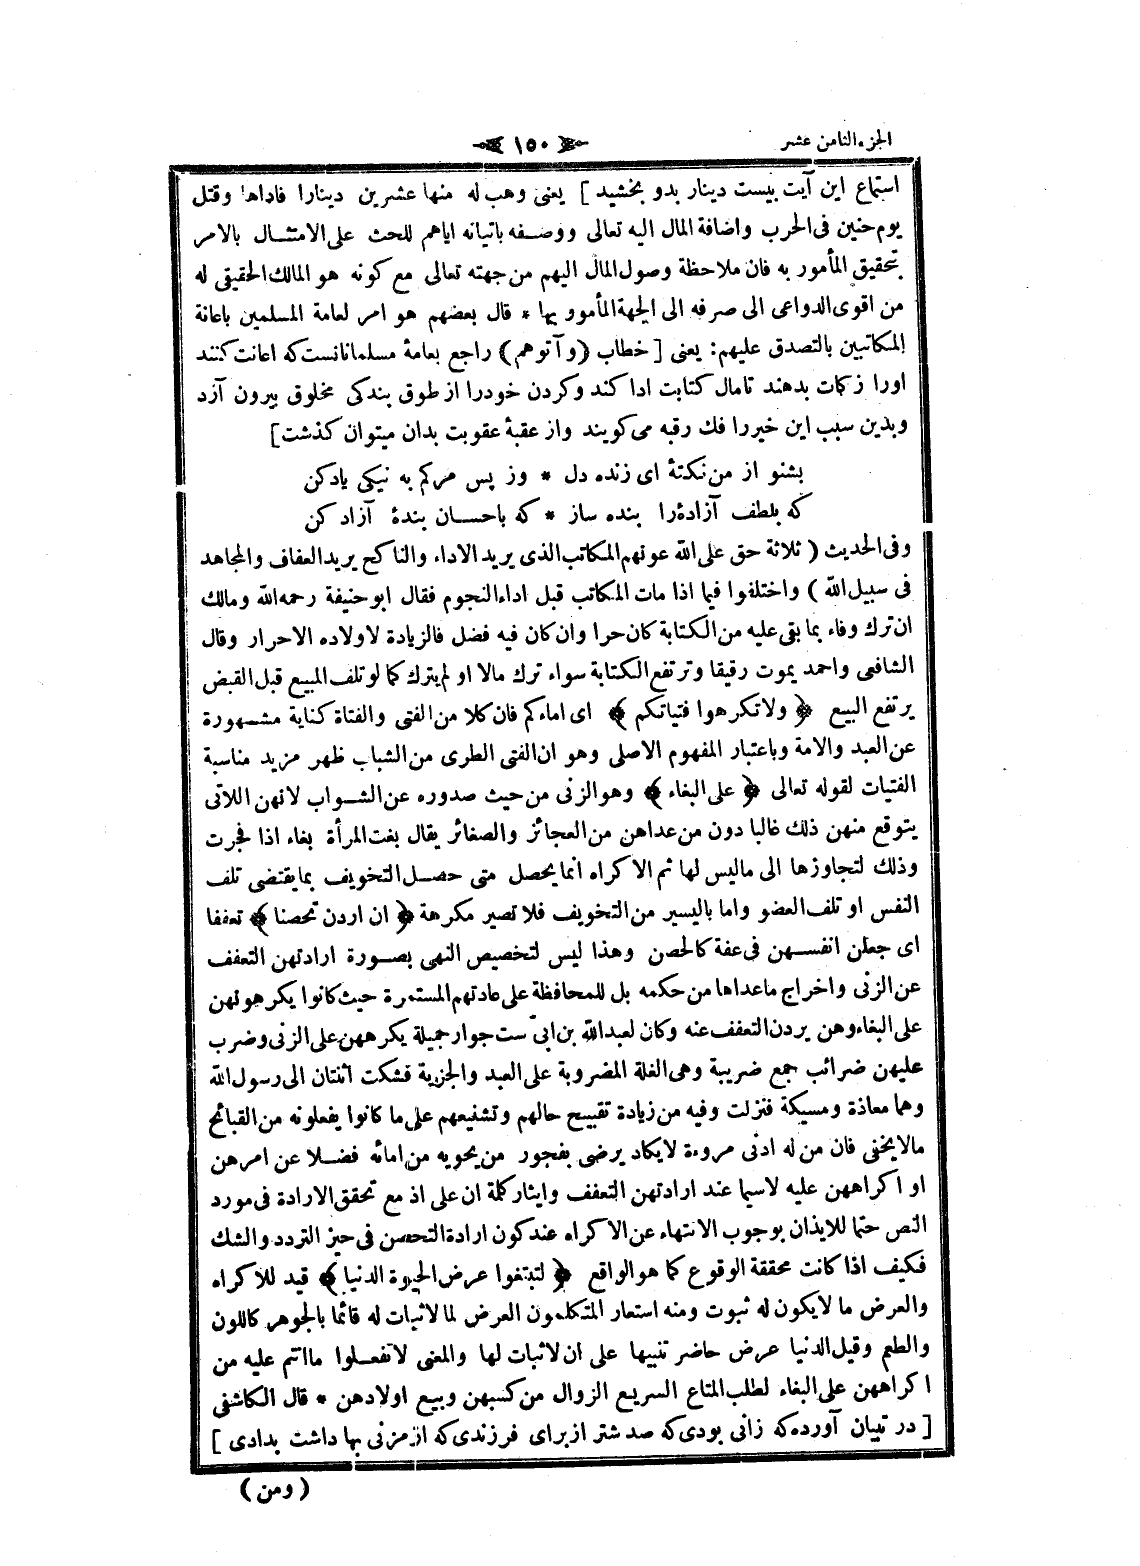 الجزء الثامن عشر
١٥٠
استماع اين آيت بيست دينار بدو بخشيد ] يعنى وهب له منها عشرين دينارا فاداها وقتل
يوم حنين فى الحرب واضافة المال اليه تعالى ووصفه باتيانه اياهم للحث على الامتثال بالامر
بتحقيق المأمور به فان ملاحظة وصول المال اليهم من جهته تعالى مع كونه هو المالك الحقيقى له
من اقوى الدواعى الى صرفه الى الجهة المأمور بها * قال بعضهم هو امر لعامة المسلمين باعانة
المكاتبين بالتصدق عليهم : يعنى [ خطاب (وآتوهم) راجع بعامۀ مسلمانانست كه اعانت كنند
اورا زكات بدهند تامال كتابت ادا كند وكردن خودرا از طوق بندكى مخلوق بيرون آرد
وبدين سبب اين خيررا فك رقبه مى كويند واز عقبۀ عقوبت بدان ميتوان كذشت ]
بشنو از من نكتۀ اى زنده دل * وز پس مركم به نيكى يادكن
كه بلطف آزادۀرا بنده ساز * كه باحسان بندۀ آزاد كن
وفى الحديث ( ثلاثة حق على الله عونهم المكاتب الذى يريد الاداء والناكح يريد العفاف والمجاهد
فى سبيل الله ) واختلفوا فيما اذا مات المكاتب قبل اداء النجوم فقال ابوحنيفة رحمه الله ومالك
ان ترك وفاء بما بقى عليه من الكتابة كان حرا وان كان فيه فضل فالزيادة لاولاده الاحرار وقال
الشافعى واحمد يموت رقيقا وترتفع الكتابة سواء ترك مالا او لم يترك كما لو تلف المبيع قبل القبض
يرتفع البيع ﴿ ولاتكرهوا فتياتكم ﴾ اى اماءكم فان كلا من الفتى والفتاة كناية مشهورة
عن العبد والامة وباعتبار المفهوم الاصلى وهو ان الفتى الطرى من الشباب ظهر مزيد مناسبة
الفتيات لقوله تعالى ﴿ على البغاء ﴾ وهو الزنى من حيث صدوره عن الشواب لانهن اللاتى
يتوقع منهن ذلك غالبا دون من عداهن من العجائز والصغائر يقال بغت المرأة بغاء اذا فجرت
وذلك لتجاوزها الى ماليس لها ثم الاكراه انما يحصل متى حصل التخويف بما يقتضى تلف
النفس او تلف العضو واما باليسير من التخويف فلا تصير مكرهة ﴿ ان اردن تحصنا ﴾ تعففا
اى جعلن انفسهن فى عفة كالحصن وهذا ليس لتخصيص النهى بصورة ارادتهن التعفف
عن الزنى واخراج ماعداها من حكمه بل للمحافظة على عادتهم المستمرة حيث كانوا يكرهونهن
على البغاء وهن يردن التعفف عنه وكان لعبدالله بن ابىّ ست جوار جميلة يكرههن على الزنى وضرب
عليهن ضرائب جمع ضريبة وهى الغلة المضروبة على العبد والجزية فشكت اثنتان الى رسول الله
وهما معاذة ومسيكة فنزلت وفيه من زيادة تقبيح حالهم وتشنيعهم على ما كانوا يفعلونه من القبائح
مالايخفى فان من له ادنى مروءة لايكاد يرضى بفجور من يحويه من امائه فضلا عن امرهن
او اكراههن عليه لاسيما عند ارادتهن التعفف وايثار كلمة ان على اذ مع تحقق الارادة فى مورد
النص حتما للايذان بوجوب الانتهاء عن الاكراه عند كون ارادة التحصن فى حيز التردد والشك
فكيف اذا كانت محققة الوقوع كما هو الواقع ﴿ لتبتغوا عرض الحيوة الدنيا ﴾ قيد للاكراه
والعرض ما لايكون له ثبوت ومنه استعار المتكلمون العرض لما لاثبات له قائما بالجوهر كاللون
والطعم وقيل الدنيا عرض حاضر تنبيها على ان لاثبات لها والمعنى لاتفعلوا ماانتم عليه من
اكراههن على البغاء لطلب المتاع السريع الزوال من كسبهن وبيع اولادهن * قال الكاشفى
[ در تبيان آورده كه زانى بودى كه صد شتر از براى فرزندى كه از مزنى بها داشت بدادى ]
( ومن )